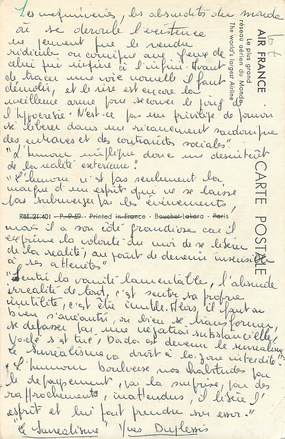 Les mesquineries, les absurdités du monde
où se déroule l'existence
ne peuvent que le rendre
ridicule ou comique aux yeux de
celui qui aspire à l'infini. Avant
de tracer une voie nouvelle il faut
démolir, et le rire est encore la
meilleure arme pour secouer le joug
d'hypocrisie. N'est-ce pas un privilège de pouvoir
se libérer dans un ricanement sardonique
des entraves et des contraintes sociales"
L'humour implique donc un
de la réalité extérieure."
"L'humour n'est pas seulement la
marque d'un esprit qui ne se laisse
pas submerger par les événements,
Printed in France - Bouchet-Lakara - Paris
mais il a son côté grandiose car il
exprime la volonté du moi de se libérer
de la réalité, au point de devenir insensible
à ses atteintes"
"Sentir la vanité lamentable, l'absurde
irréalité de tout, c'est sentir sa propre
inutilité, c'est être Alors il faut ou
bien s'anéantir, ou bien se transformer,
se dépasser par une négation substantielle.
s'est tué, Dada est devenu le surréalisme
Le Surréalisme va droit à la zone interdite"
L'humour bouleverse nos habitudes par
le dépaysement, par la surprise, par des
rapprochements inattendus, il libère l'
esprit et lui fait prendre son essor."
"Le Surréalisme" Yves Duplessis
AIR FRANCE
Le plus grand
réseau aérien du Monde
The world's largest Airline
CARTE POSTALE